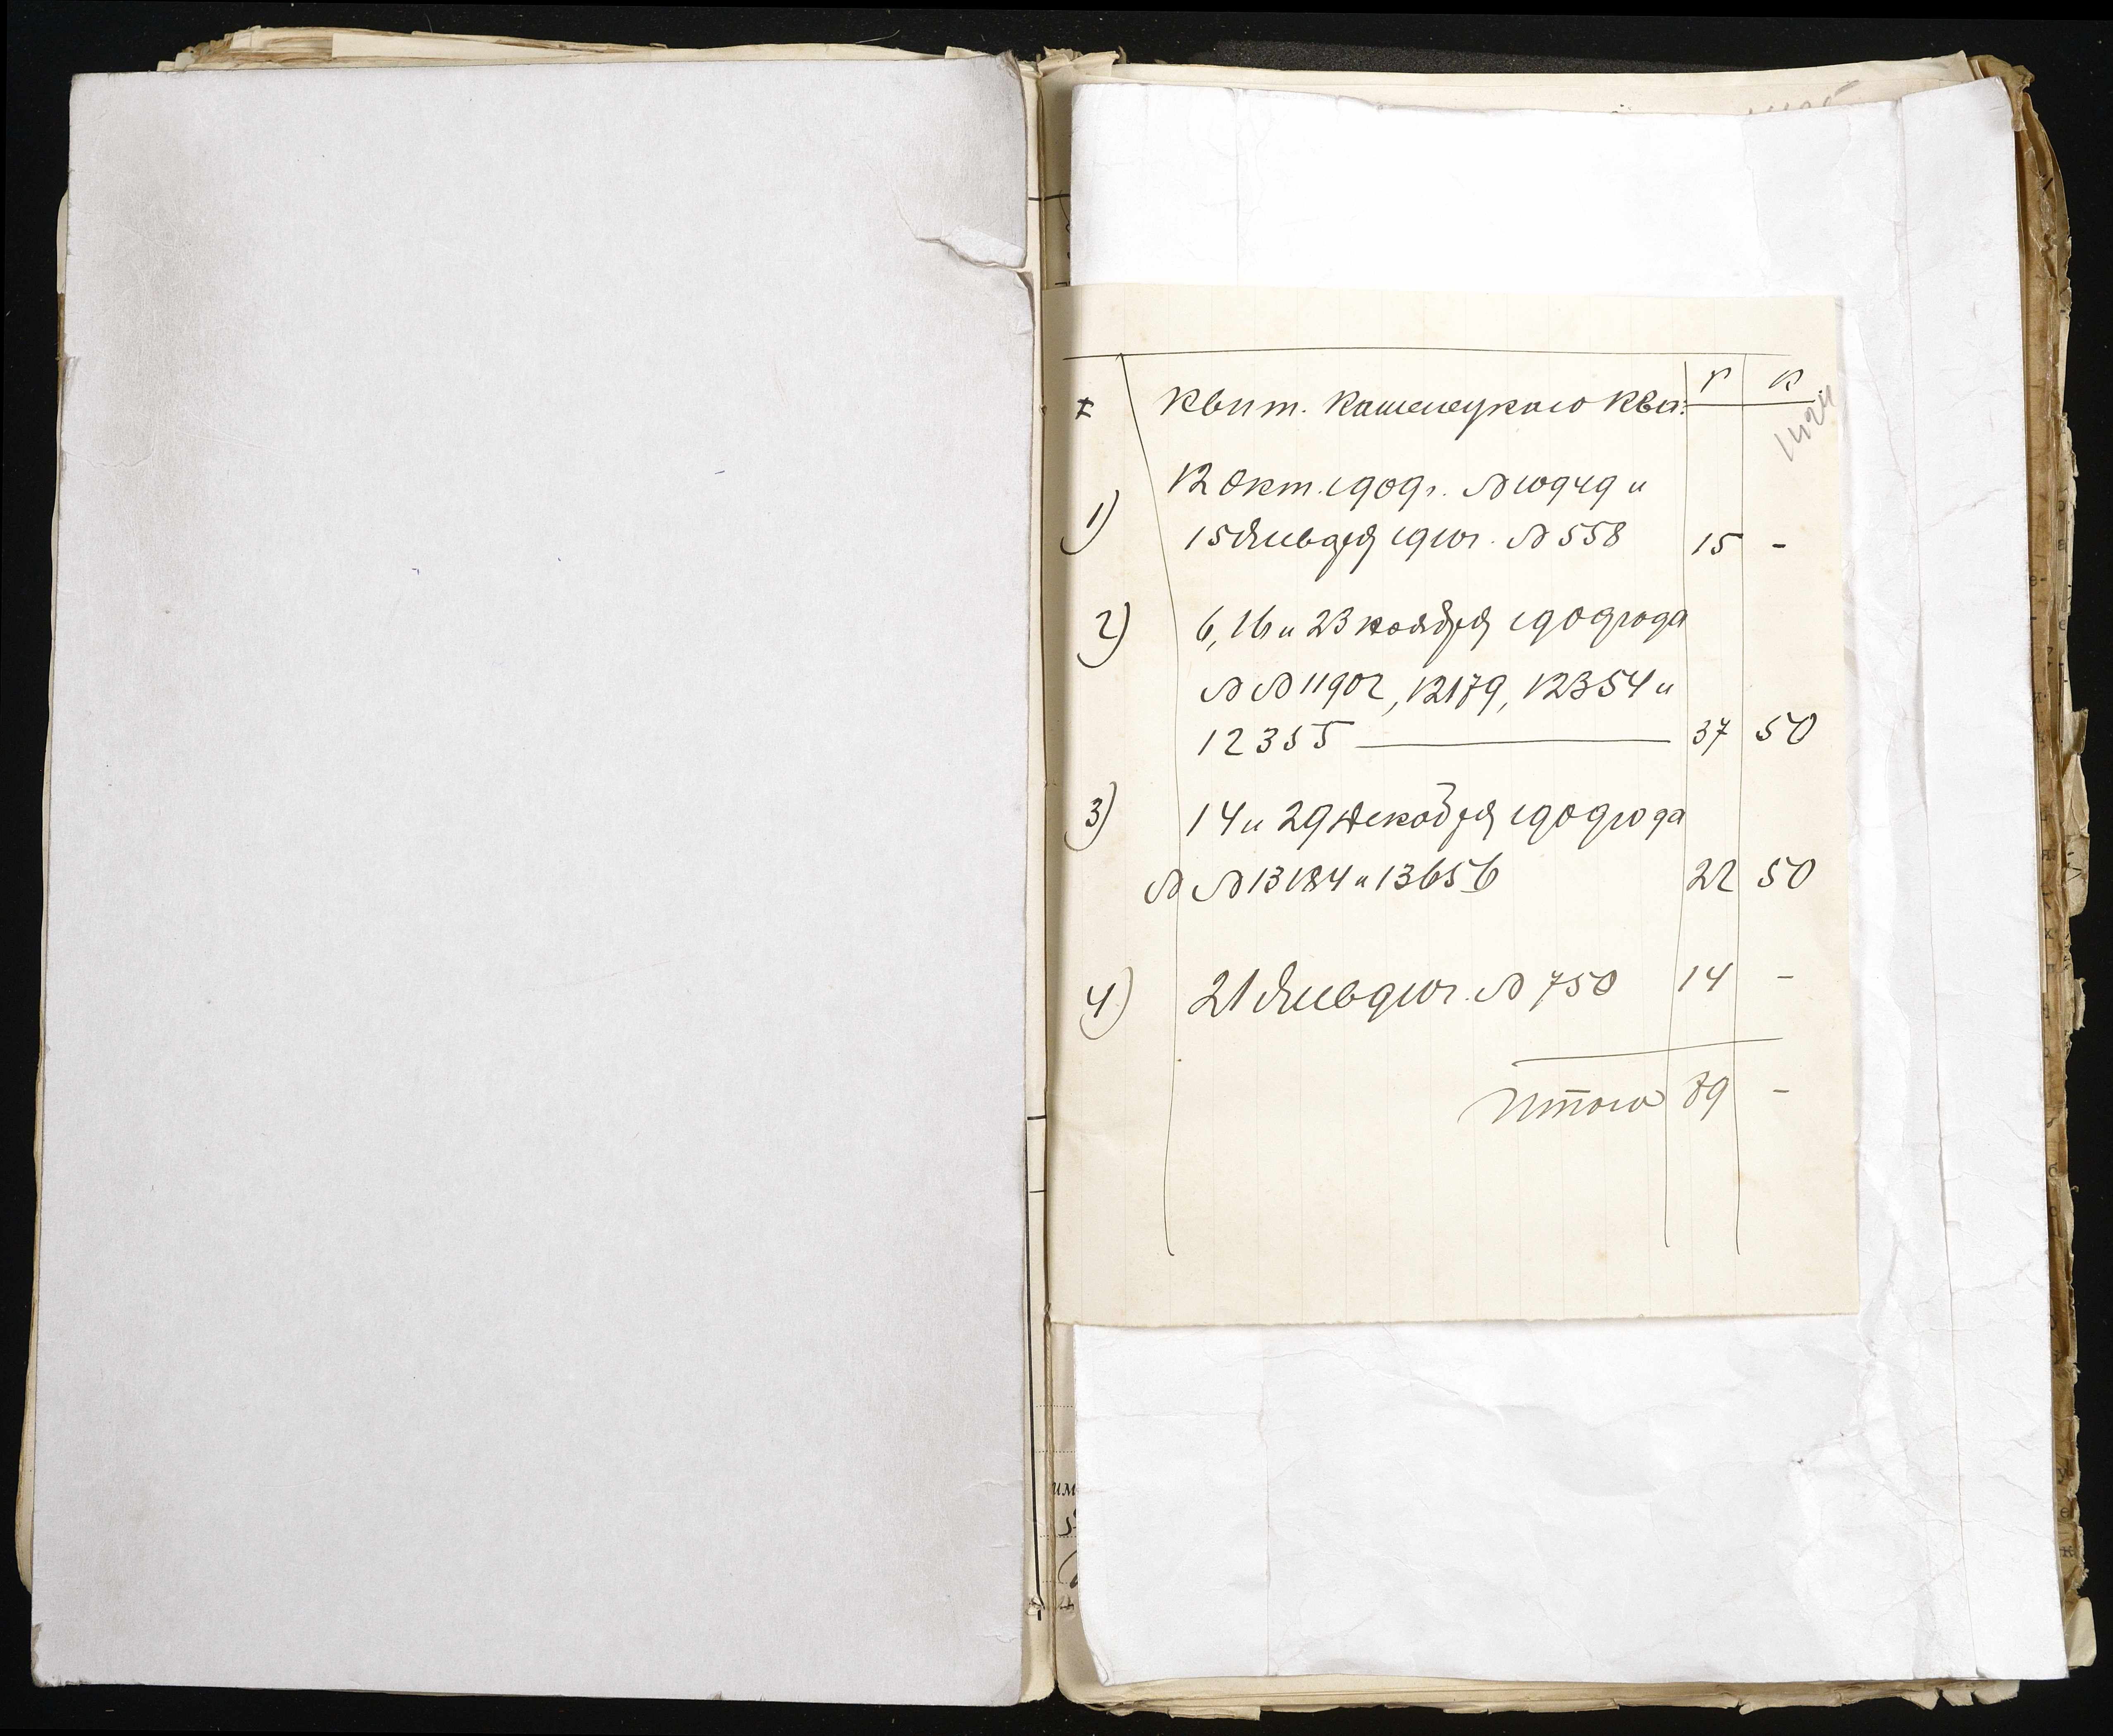 Р К
Квит. Каменецкаго Каз.
1424
12 Окт. 1909 г. № 10949 и
1) 15 Января 1910 г. № 558 15 -
2) 6, 16 и 23 ноября 1909 года
№ № 11902, 12179, 12354 и
12355 — 37 50
3) 14 и 29 Декабря 1909 года
№ № 13184 и 13656 22 50
4) 21 Янв 910 г. № 750 14 -
Итого 89 -